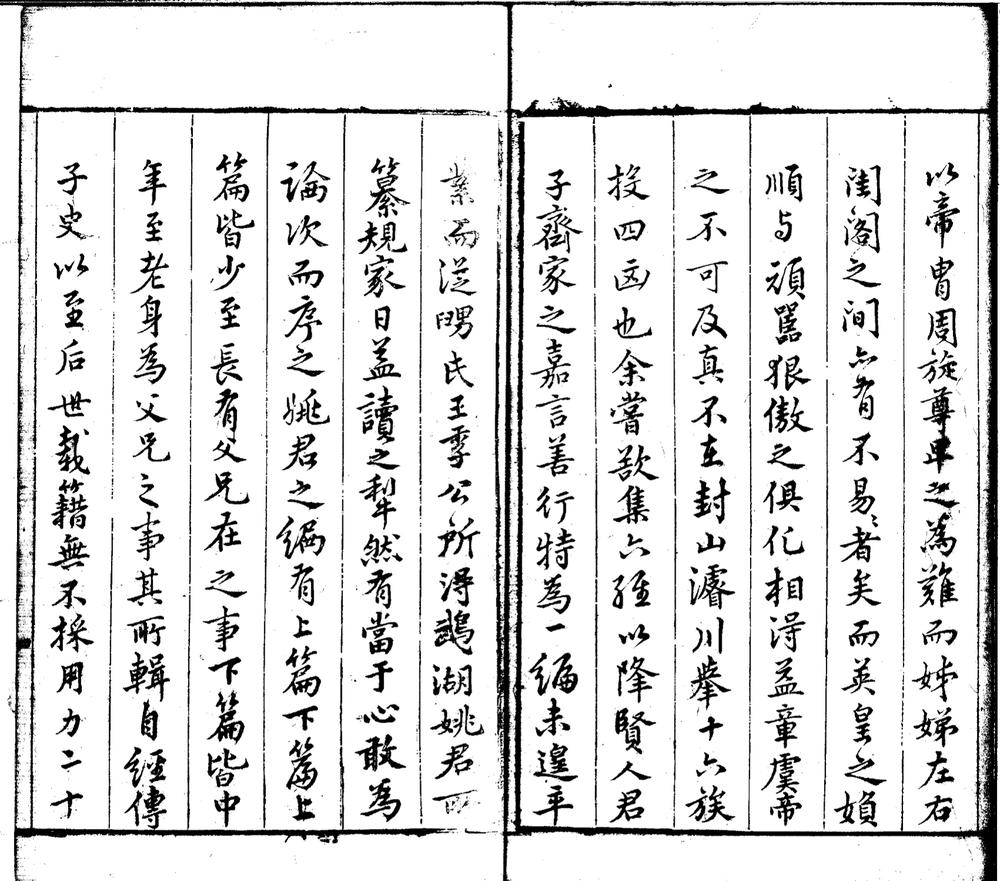 以帝胄周旋尊卑之為難而姊娣左右
閨閤之间亦有不易〻者矣而英皇之嬪
順与頑嚚狠傲之俱化相淂益章虞帝
之不可及真不在封山濬川舉十六族
投四凶也余嘗欲集六經以降賢人君
子齊家之嘉言善行特為一編未遑卒
業而從甥氏王季公所淂鵡湖姚君所
纂規家日益讀之犁然有當于心敢為
論次而序之姚君之編有上篇下篇上
篇皆少至長有父兄在之事下篇皆中
年至老身為父兄之事其所輯自經傳
子史以至后世載籍無不採用力二十